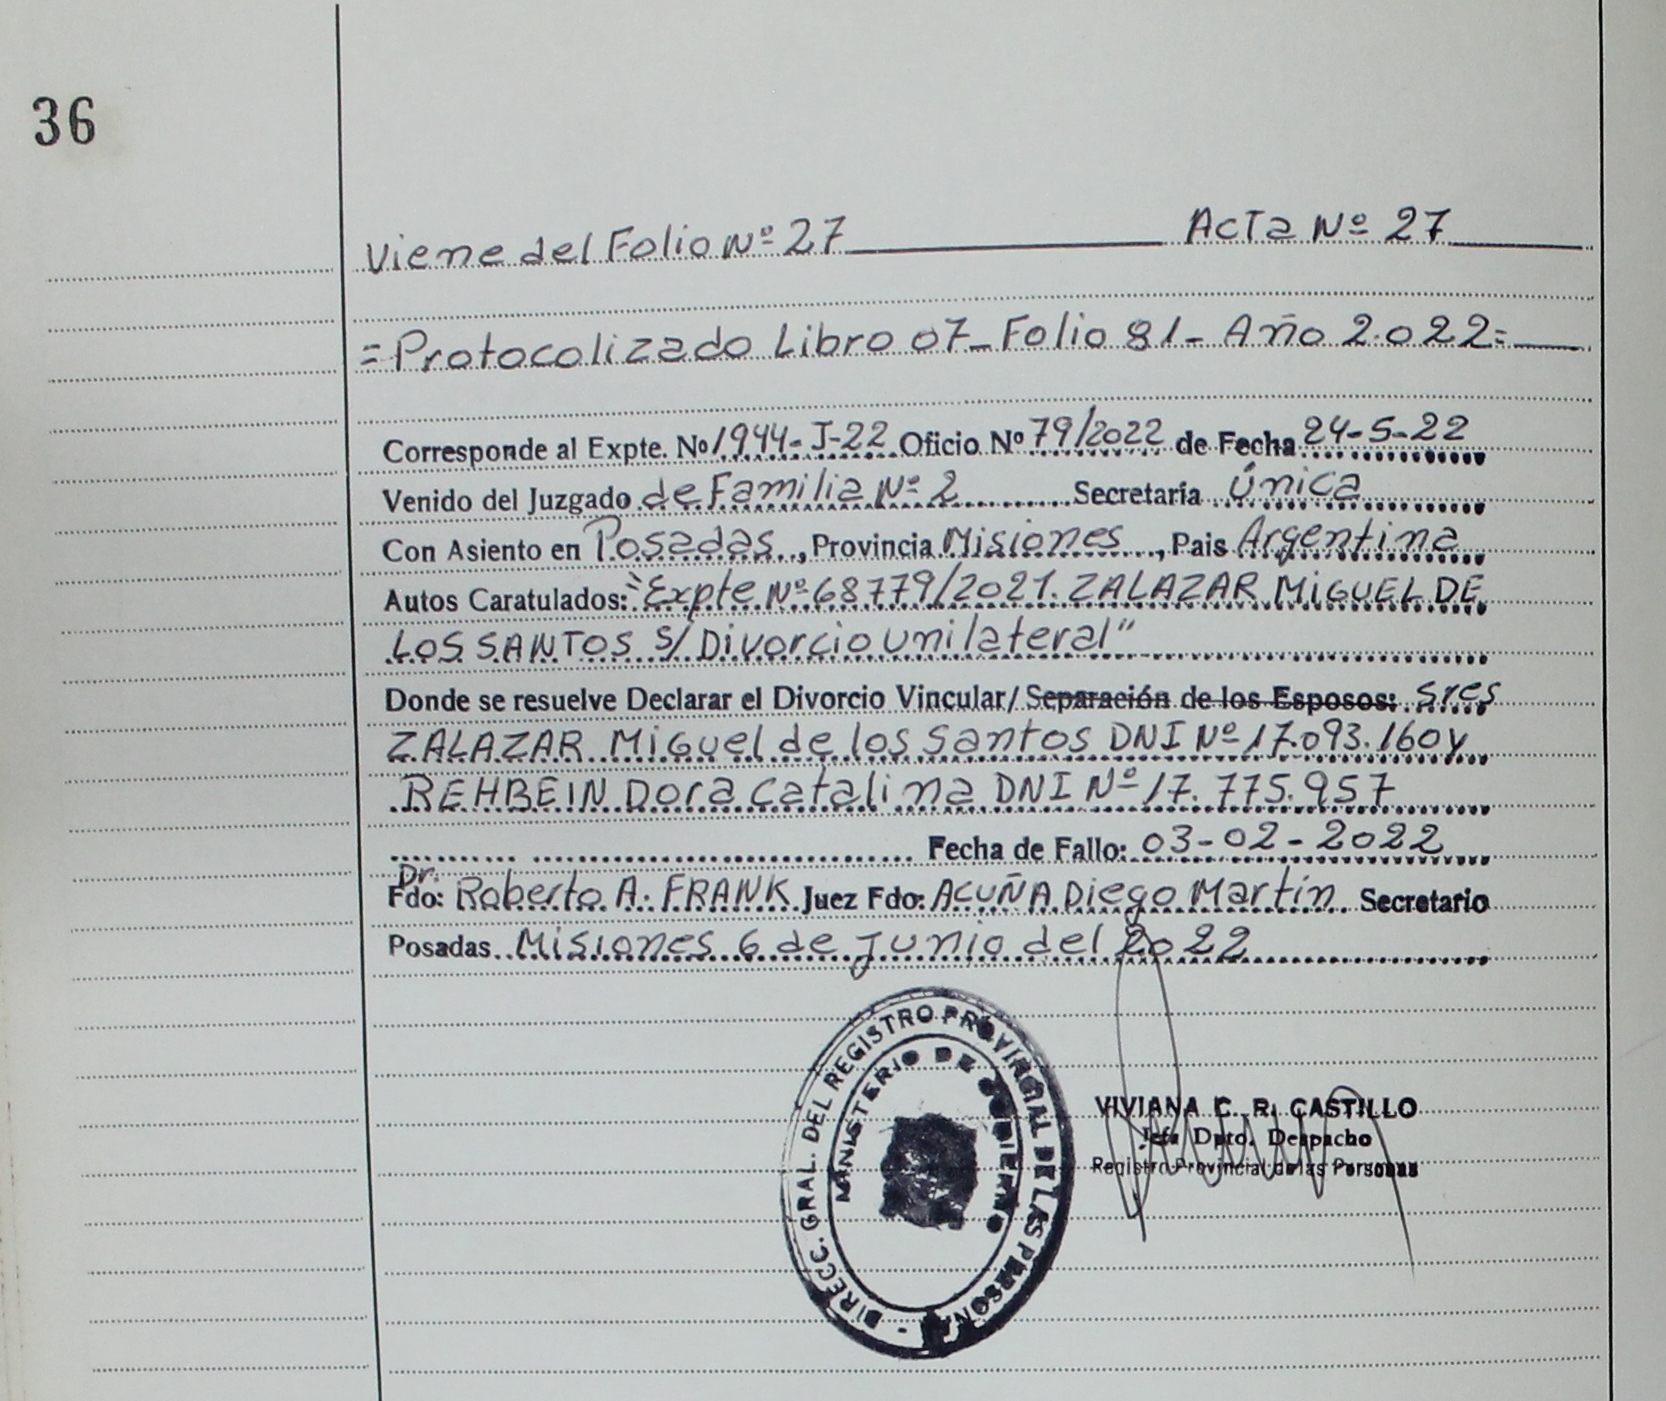 36
Viene del Folio Nº 27 Acta Nº 27
=Protocolizado Libro 07_Folio 81_ Año 2.022=
Corresponde al Expte. Nº 1944-J-22 Oficio Nº 79/2022 de Fecha 24-5-22
Venido del Juzgado de Familia Nº 2 Secretaría Única
Con Asiento en Posadas, Provincia Misiones, Pais Argentina
Autos Caratulados: "Expte Nº 68779/2021. ZALAZAR MIGUEL DE
LOS SANTOS S/ Divorcio unilateral"
Donde se resuelve Declarar el Divorcio Vincular/ Separación de los Esposos: Sres
ZALAZAR Miguel de los Santos DNI Nº 17.093.160 y
REHBEIN Dora Catalina DNI Nº 17.775.957
Fecha de Fallo: 03-02-2022
Dr.
Fdo: Roberto A. FRANK Juez Fdo: ACUÑA Diego Martín Secretario
Posadas Misiones 6 de Junio del 2022
DIRECC. GRAL. DEL REGISTRO PROVINCIAL DE LAS PERSONAS
MINISTERIO DE GOBIERNO
VIVIANA C. R. CASTILLO
Jefa Dpto. Despacho
Registro Provincial de las Personas